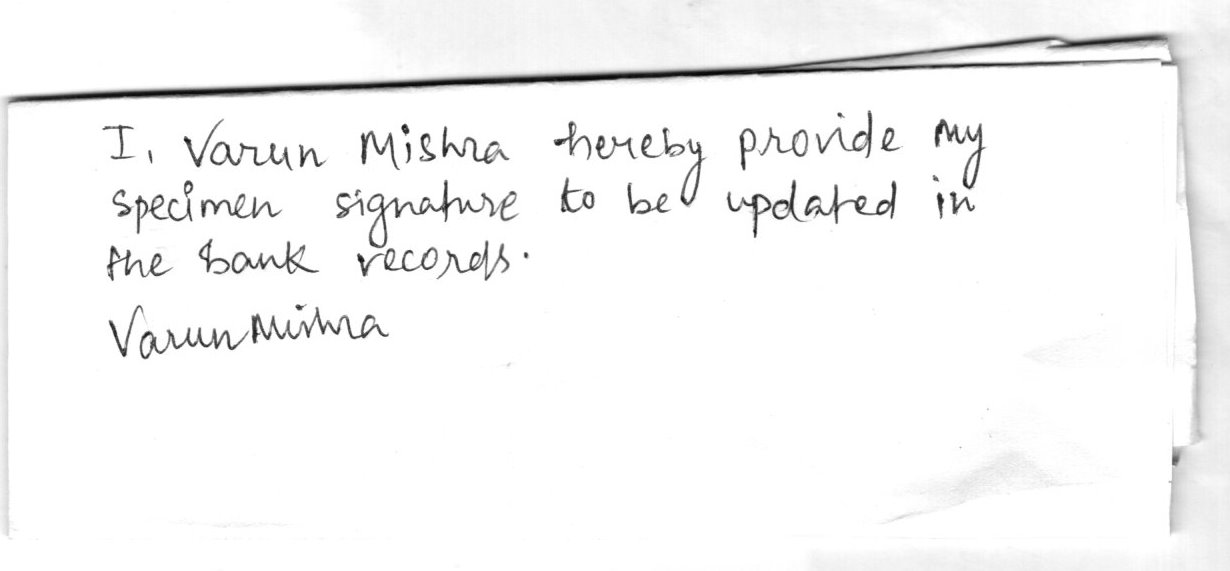 I, Varun Mishra hereby provide my
specimen signature to be updated in
the bank records.
Varun Mishra